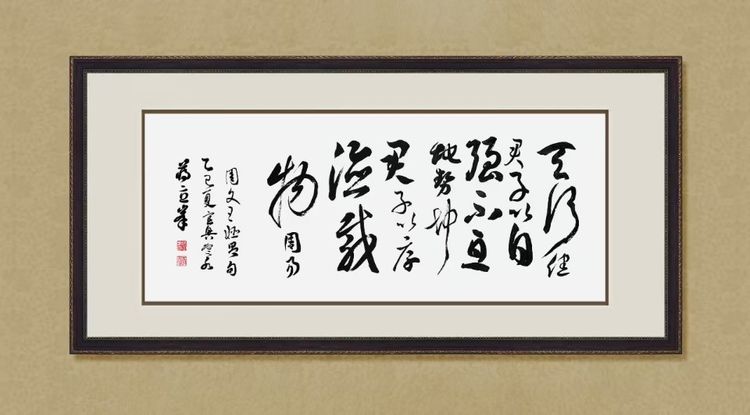 天行健
君子以自
强不息
地势坤
君子以厚
德载
物 周易
周文王姬昌句
乙巳夏
蒋立